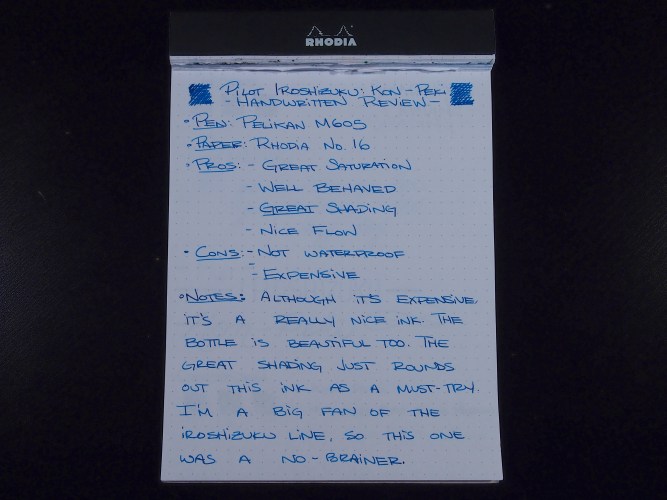 RHODIA
PILOT IROSHIZUKU: KON-PEKI
- HANDWRITTEN REVIEW -
• PEN: PELIKAN M605
• PAPER: RHODIA No. 16
• PROS: - GREAT SATURATION
- WELL BEHAVED
- GREAT SHADING
- NICE FLOW
• CONS: - NOT WATERPROOF
- EXPENSIVE
• NOTES: ALTHOUGH IT'S EXPENSIVE
IT'S A REALLY NICE INK. THE
BOTTLE IS BEAUTIFUL TOO. THE
GREAT SHADING JUST ROUNDS
OUT THIS INK AS A MUST-TRY.
I'M A BIG FAN OF THE
IROSHIZUKU LINE, SO THIS ONE
WAS A NO-BRAINER.